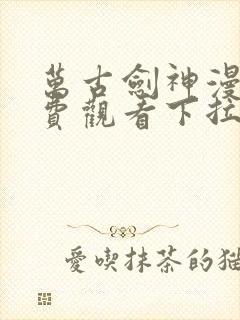 萬古劍神漫
費觀看下拉
愛喫抹茶的貓